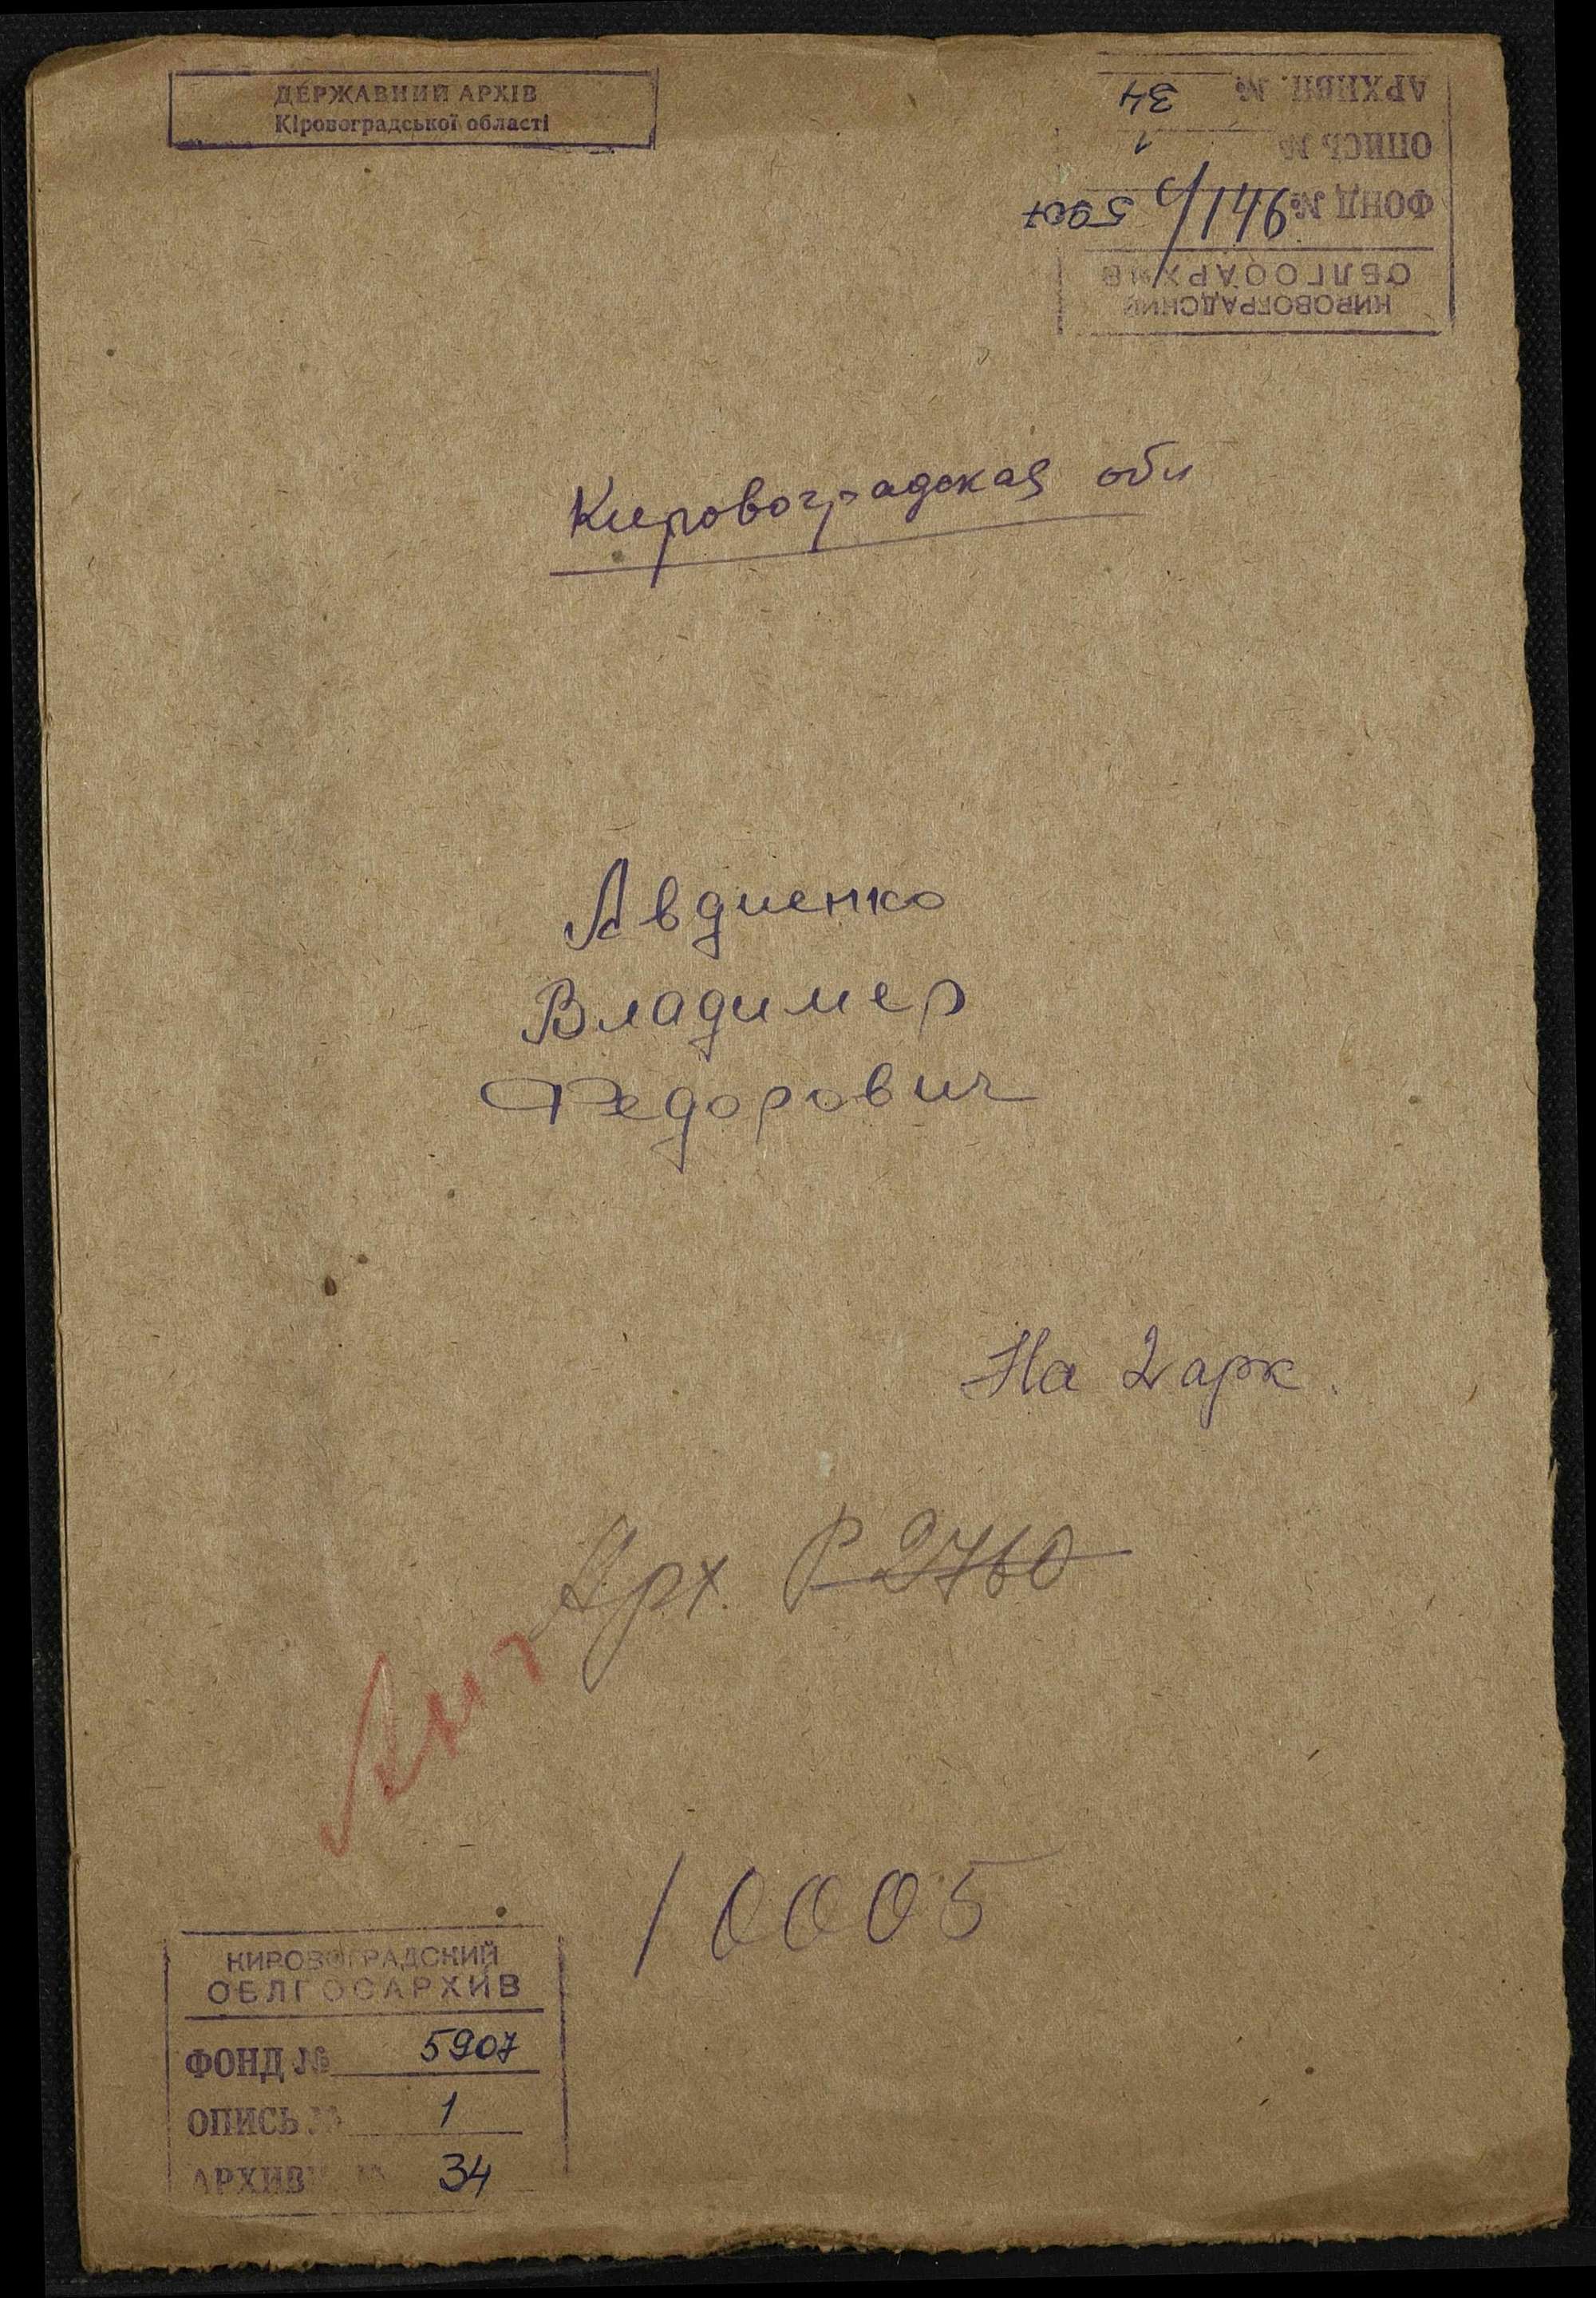 ДЕРЖАВНИЙ АРХІВ
Кіровоградської області
КИРОВОГРАДСКИЙ
ОБЛГОСАРХИВ
ФОНД № 5907
ОПИСЬ № 1
АРХИВН. № 34
Кировоградская обл
Авдиенко
Владимер
Федорович
На 2 арк.
Арх. Р 2760
10005
КИРОВОГРАДСКИЙ
ОБЛГОСАРХИВ
ФОНД № 5907
ОПИСЬ № 1
АРХИВН № 34